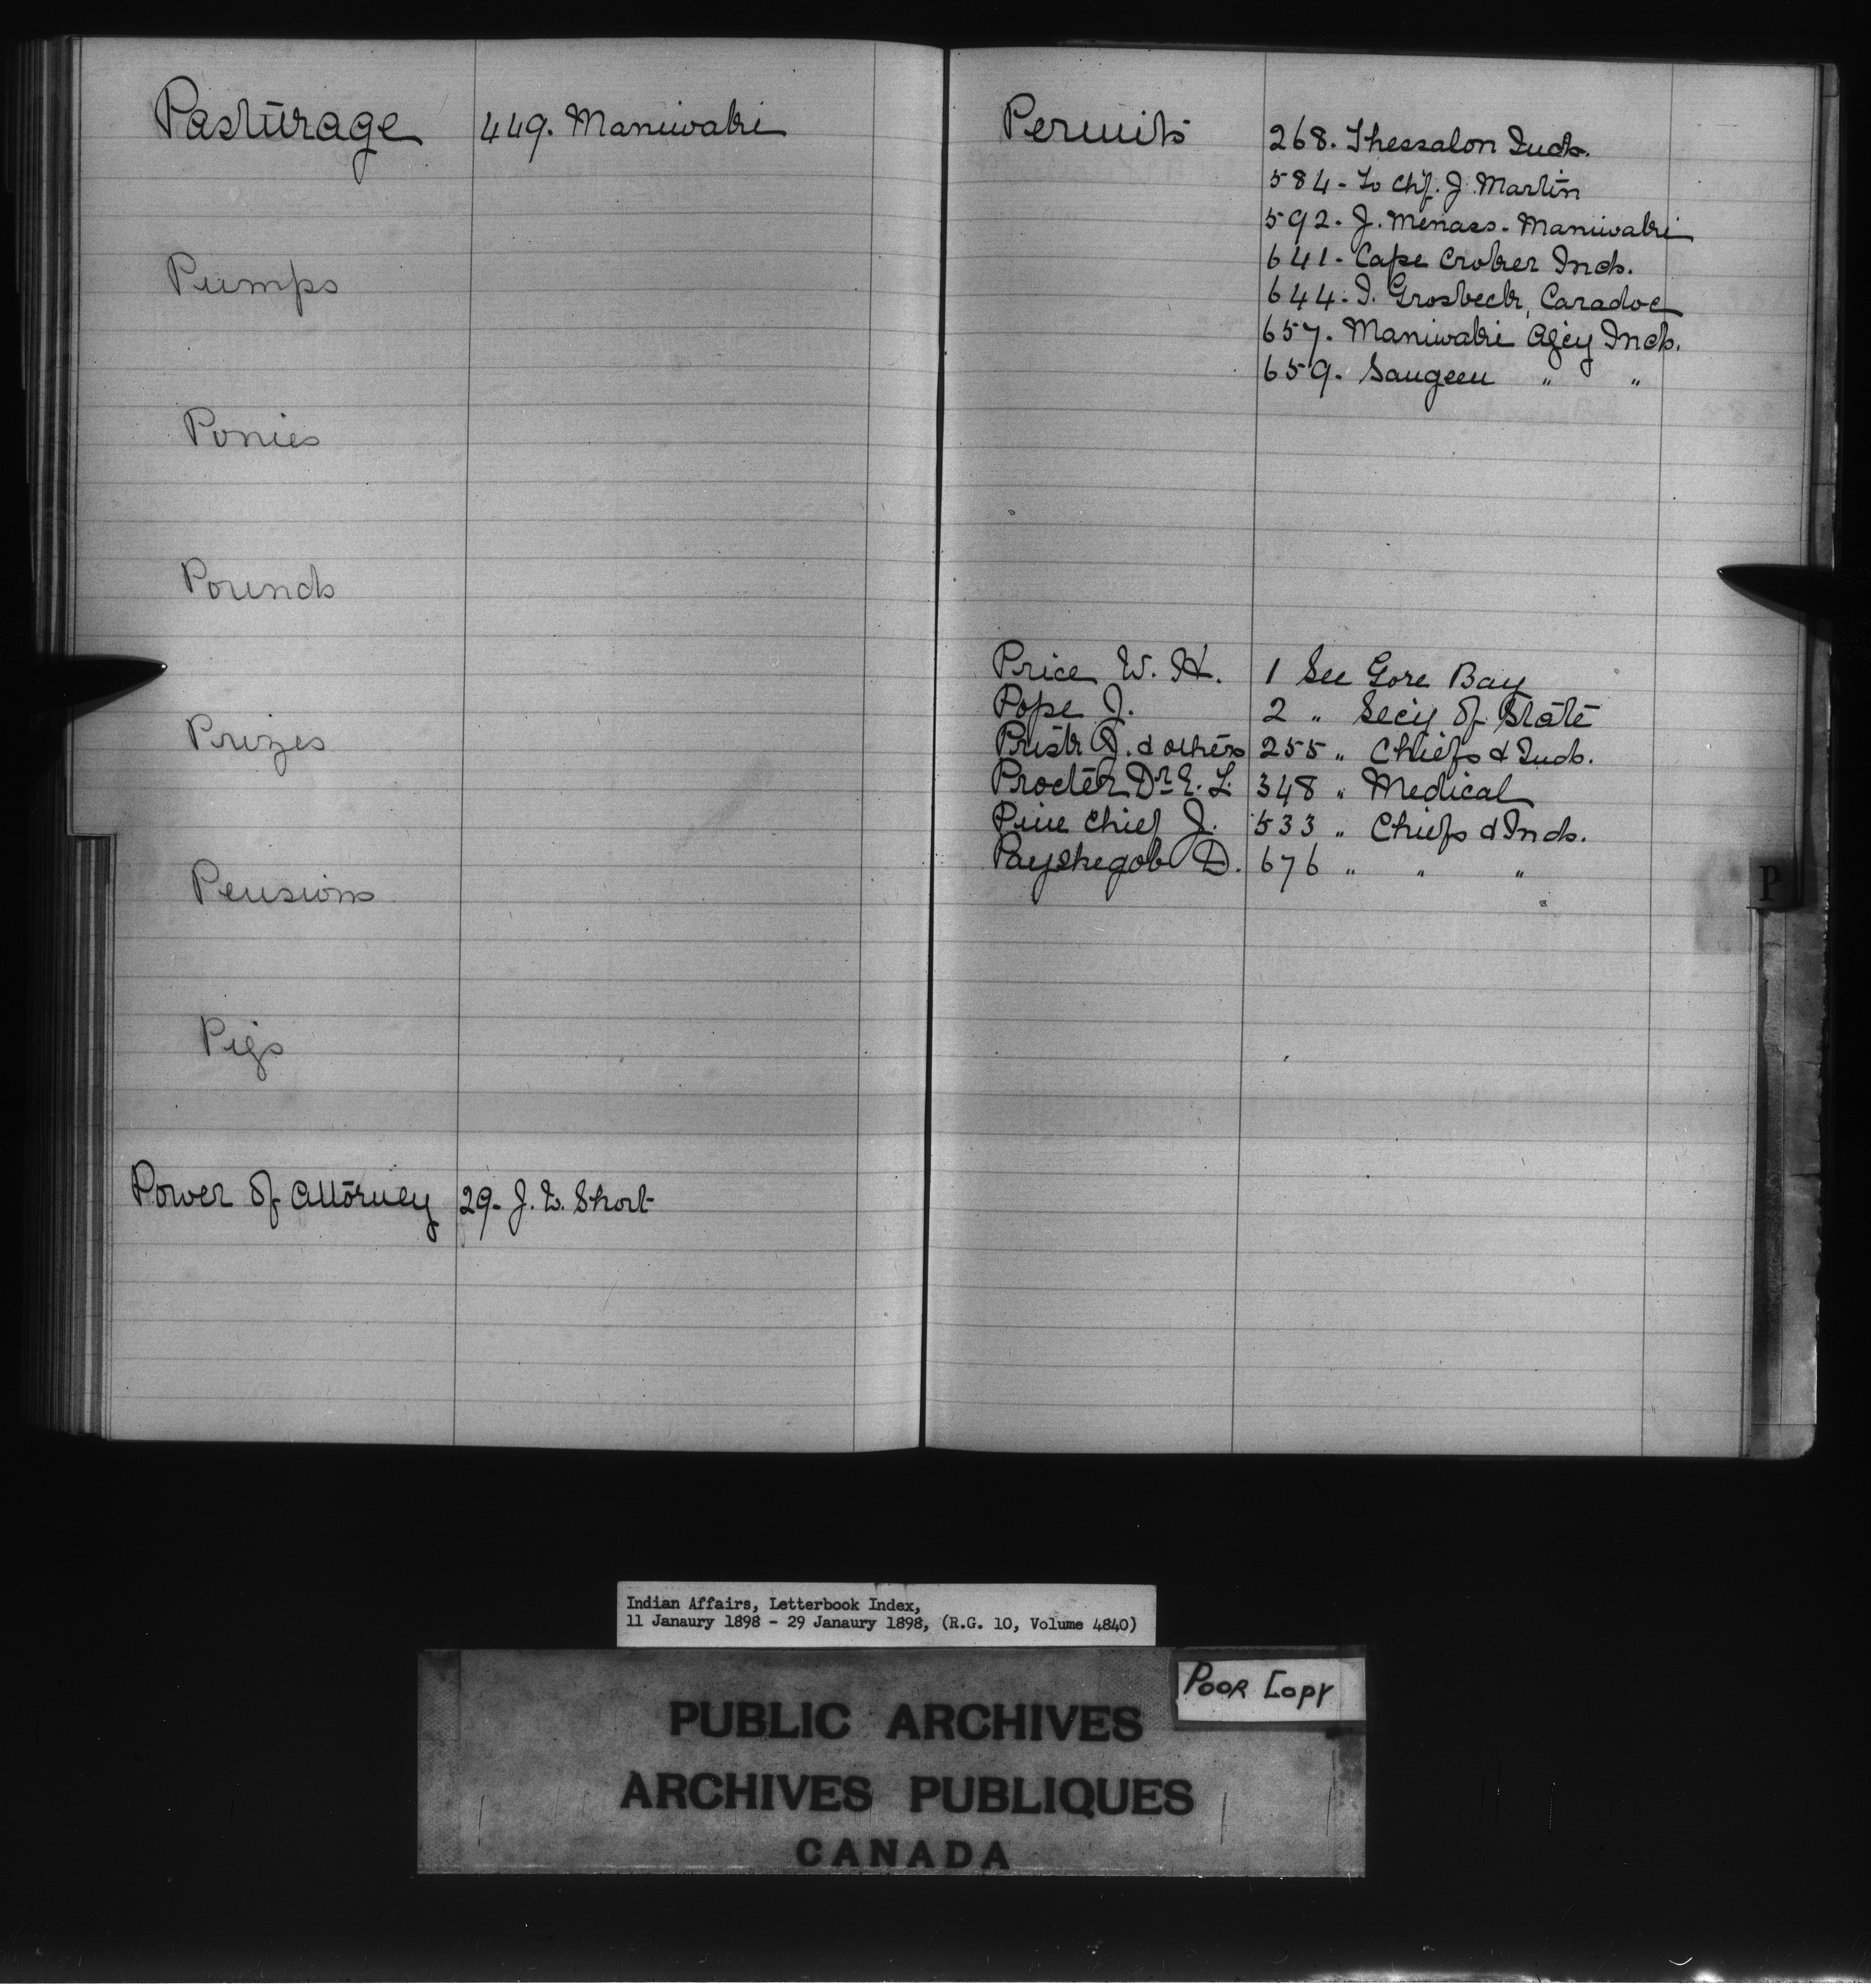 Pasturage 449. Maniwaki
Pumps
Ponies
Pounds
Prizes
Pensions
Pigs
Power of Attorney 29- J. W. Short
Permits 268. Thessalon Inds.
584- To Chf. J. Martin
592- J. Menass- Maniwaki
641- Cape Croker Inds.
644- I. Grosbeck, Caradoc
657. Maniwaki Agcy Inds.
659. Saugeen " "
Price W. H. 1 See Gore Bay
Pope J. 2 " Secy of State
J. & others 255 " Chiefs & Inds.
Procter Dr E. L. 348 " Medical
Pine Chief J. 533 " Chiefs & Inds.
Payshegob D. 676 " " "
P
Indian Affairs, Letterbook Index,
11 Janaury 1898 - 29 Janaury 1898, (R.G. 10, Volume 4840)
Poor Copy
PUBLIC ARCHIVES
ARCHIVES PUBLIQUES
CANADA